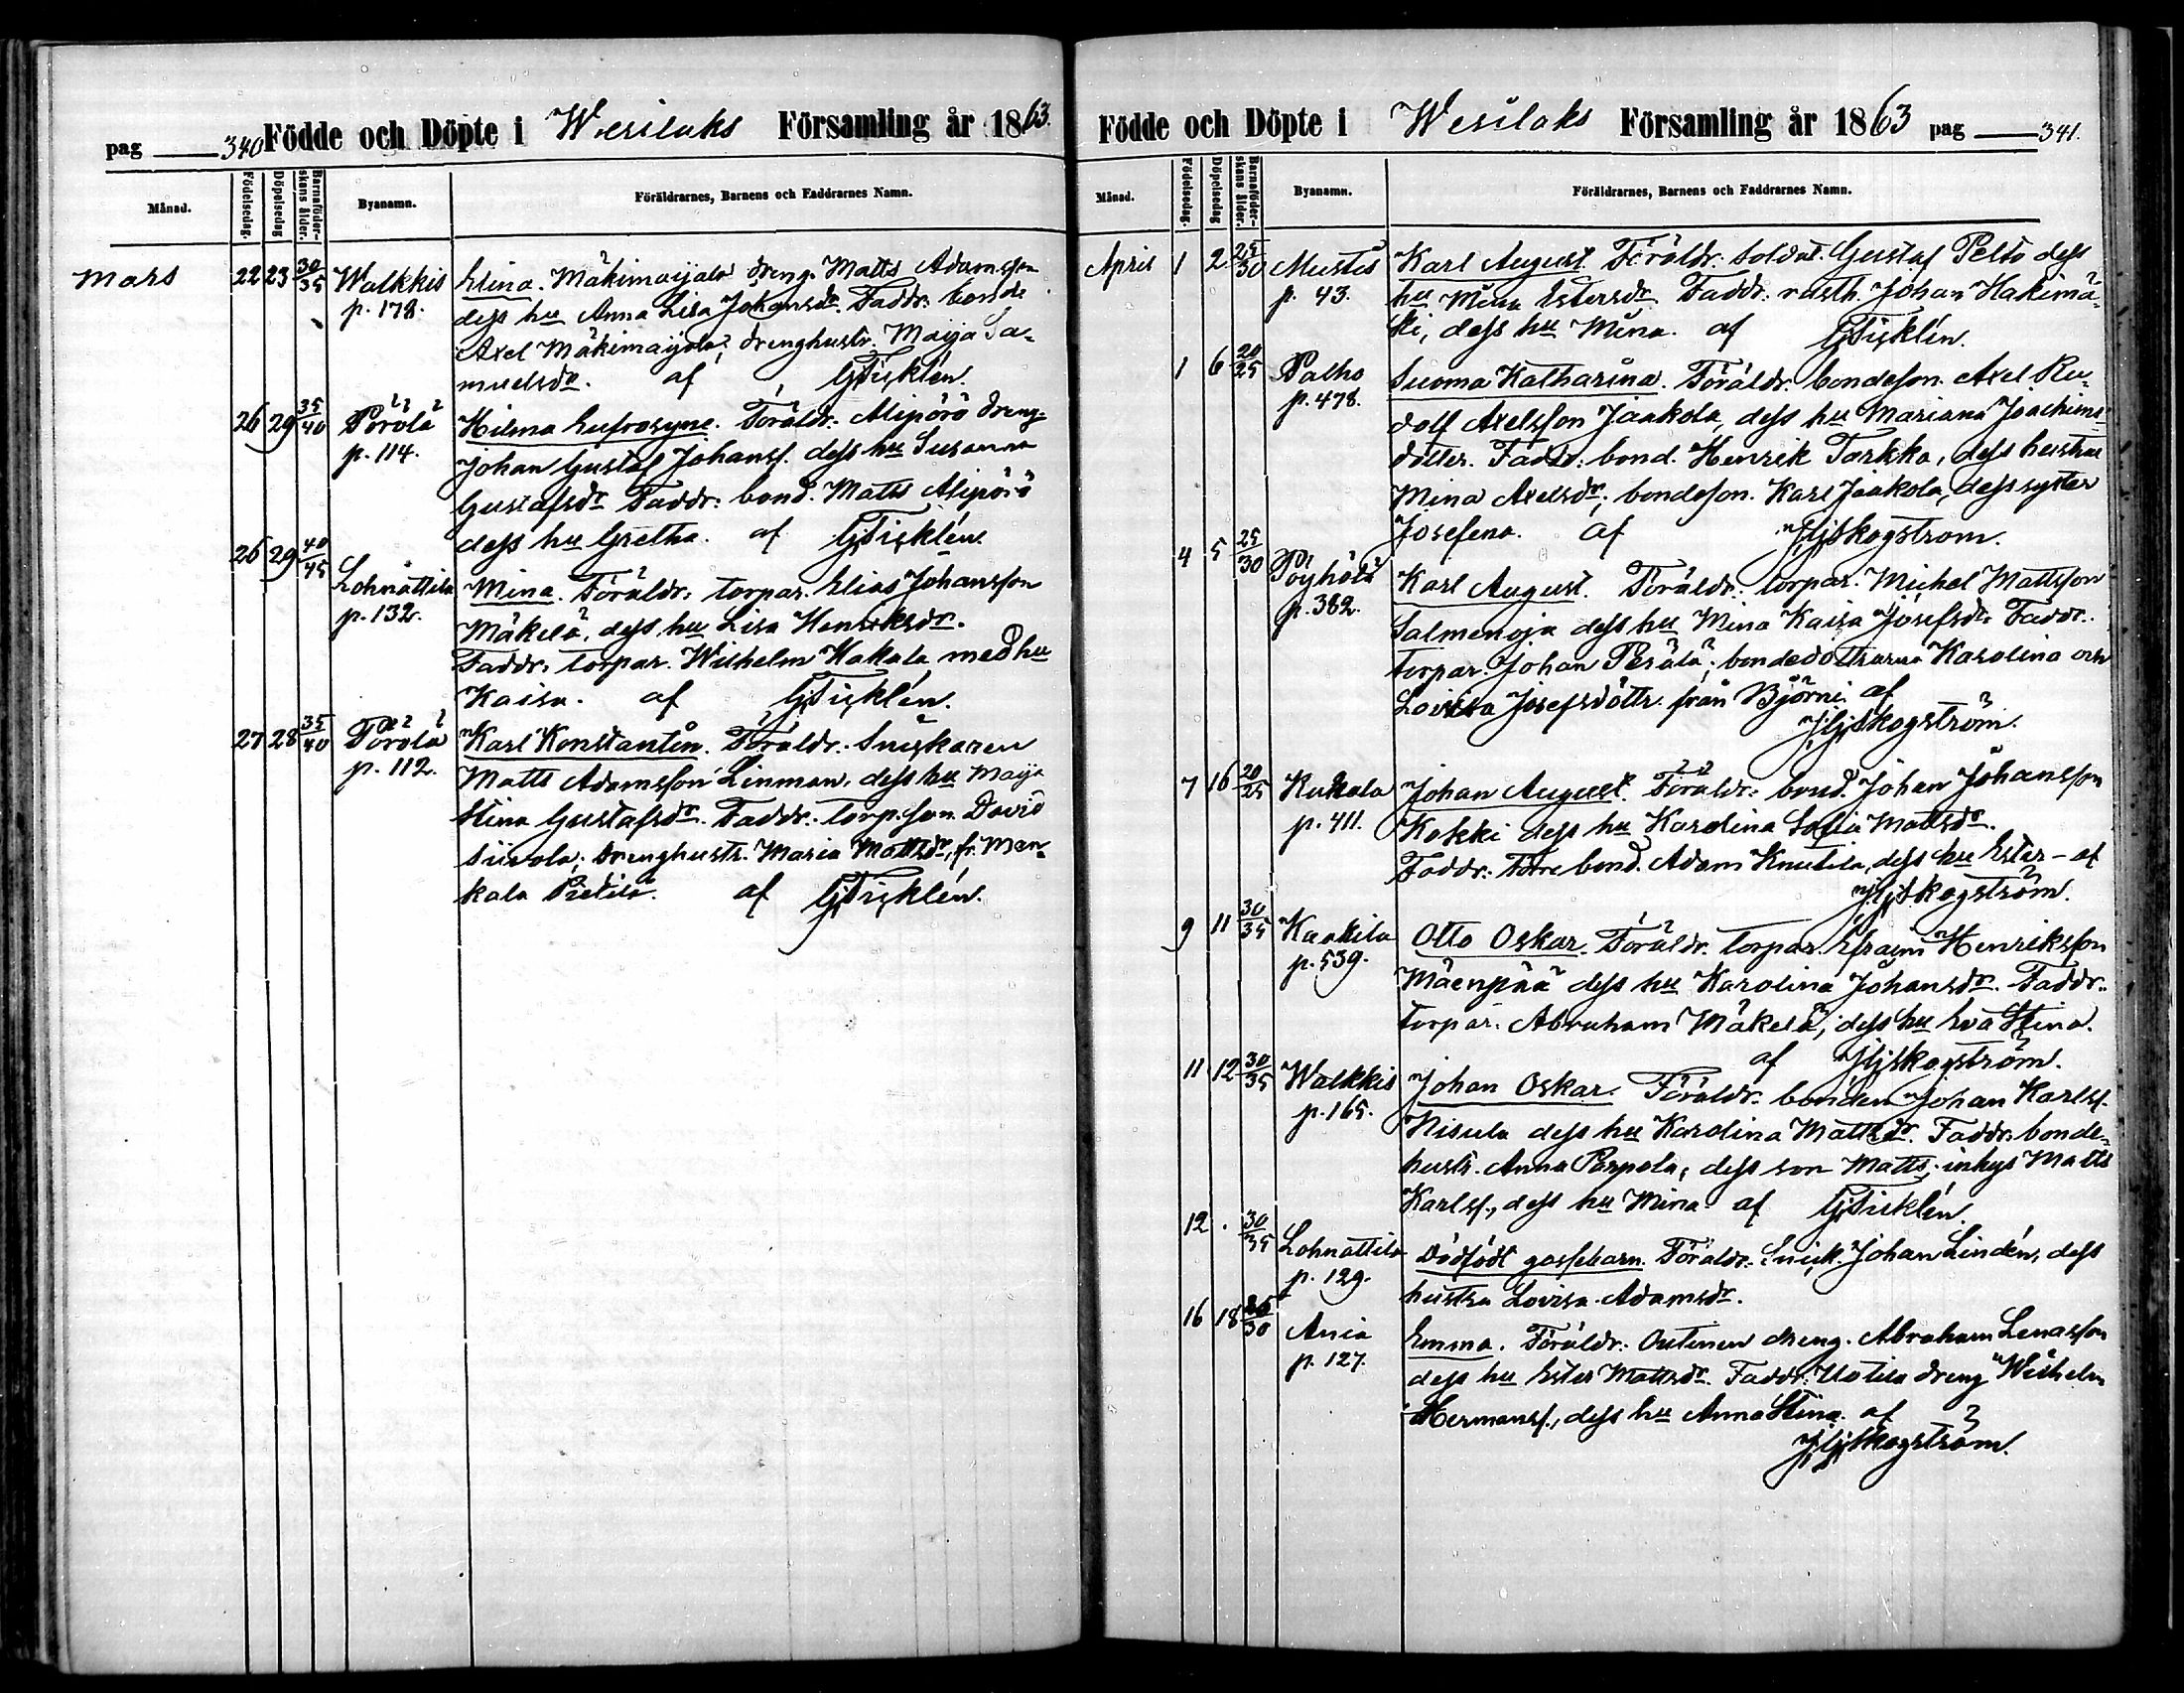 pag 340 Födde och Döpte i Wesilaks Församling år 1863.
Månad. Födelsedag. Döpelsedag Barnaföderskans ålder. Byanamn. Föräldrarnes, Barnens och Faddrarnes Namn.
Mars 22 23 30/35 Walkkis Elina. Mäkimaijala dreng. Matts Adamsson
p. 178. dess hu Anna Lisa Johansdr. Faddr: bonde
Axel Mäkimaijala, drenghustr. Maija Sa-
muelsdr. af GTicklén.
26 29 35/40 Pörölä Hilma Eufrosyne. Föräldr: Alipörö dreng-
p. 114. Johan Gustaf Johanss. dess hu Susanna
Gustafsdr Faddr: bond. Matts Alipörö
dess hu Gretha. af GTicklén
26 29 40/45
Lohnattila Mina. Föräldr: torpar. Elias Johansson
p. 132. Mäkelä, dess hu Lisa Henriksdr.
Faddr: torpar. Wilhelm Kakala med hu
Kaisa. af GTicklén.
27 28 35/40 Pörölä Karl Konstantin. Föräldr: Snickaren
p. 112. Matts Adamsson Linman, dess hu Maija
Stina Gustafsdr. Faddr: torp.son David
Siivola; drenghustr. Maria Mattsdr, fr. Man-
kala Pietilä. af GTicklén.
Födde och Döpte i Wesilaks Församling år 1863 pag 341.
Månad. Födelsedag. Döpelsedag Barnaföderskans ålder. Byanamn. Föräldrarnes, Barnens och Faddrarnes Namn.
April 1 2 25/30 Mustis Karl August. Föräldr: soldat. Gustaf Pelto dess
p. 43. hu Mina Estersdr Faddr: rusth. Johan Hakimä-
ki, dess hu Mina. af GTicklén.
1 6 20/25 Palho Suoma Katharina. Föräldr: bondeson. Axel Ru-
p. 478. dolf Axelsson Jaakola, dess hu Mariana Joachims-
dotter. Faddr: bond. Henrik Tarkka, dess hustru
Mina Axelsdr; bondeson. Karl Jaakola, dess syster
Josefena. af JGSkogström.
4 5 25/30 Pöyhölä Karl August. Föräldr: torpar. Michel Mattsson
p. 382. Salmenoja dess hu Mina Kaisa Josefsdr. Faddr:
torpar. Johan Perälä; bondedöttrarna Karolina och
Lovisa Josefsdöttr. från Björni af
JGSkogström.
7 16 20/25 Kukala Johan August. Föräldr: bond. Johan Johansson
p. 411. Kokki dess hu Karolina Sofia Mattsdr.
Faddr: Förre bond. Adam Knutila, dess hu Ester - af
JGSkogström.
9 11 30/35 Kaakila Otto Oskar. Föräldr: torpar. Efraim Henriksson
p. 539. Mäenpää dess hu Karolina Johansdr. Faddr:
torpar. Abraham Mäkelä; dess hu Eva Stina.
af JGSkogström.
11 12 30/35 Walkkis Johan Oskar. Föräldr: bonden Johan Karlss.
p. 165. Nisula dess hu Karolina Mattsdr. Faddr: bonde-
hustr. Anna Parpola, dess son Matts; inhys Matts
Karlss., dess hu Mina af GTicklén.
12 . 30/35 Lohnattila Dödfödt gossebarn. Föräldr: Snick. Johan Lindén, dess
p. 129. hustru Lovisa Adamsdr.
16 18 25/30 Ania Emma. Föräldr: Outinen dreng. Abraham Lenasson
p. 127. dess hu Ester Mattsdr. Faddr: Uotila dreng Wilhelm
Hermanss., dess hu Anna Stina. af
JGSkogström.